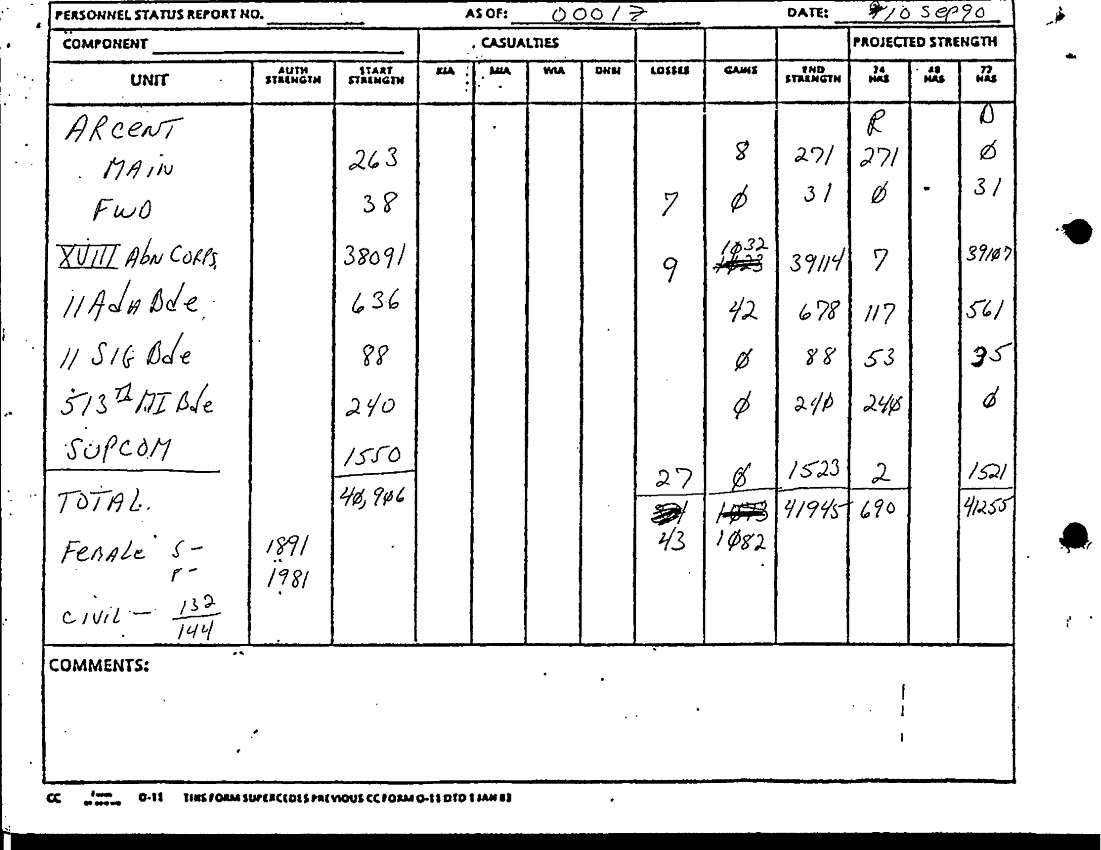 PERSONNEL STATUS REPORT NO. AS OF: 0001Z DATE: 10 Sep 90
COMPONENT CASUALTIES PROJECTED STRENGTH
UNIT AUTH STRENGTH START STRENGTH KIA MIA WIA DNBI LOSSES GAINS END STRENGTH 24 HRS 48 HRS 72 HRS
ARCENT R D
MAIN 263 8 271 271 Ø
FWD 38 7 Ø 31 Ø - 31
XVIII Abn CORPS 38091 9 1Ø32 39114 7 391Ø7
11 Ada Bde 636 42 678 117 561
11 SIG Bde 88 Ø 88 53 35
513th MI Bde 240 Ø 24Ø 24Ø Ø
SUPCOM 1550 27 Ø 1523 2 1521
TOTAL. 4Ø,9Ø6 41945 690 41255
43 1Ø82
FEMALE S - 1891
P - 1981
CIVIL - 132
144
COMMENTS:
CC Form O-11 THIS FORM SUPERCEDES PREVIOUS CC FORM O-11 DTD 1 JAN 83